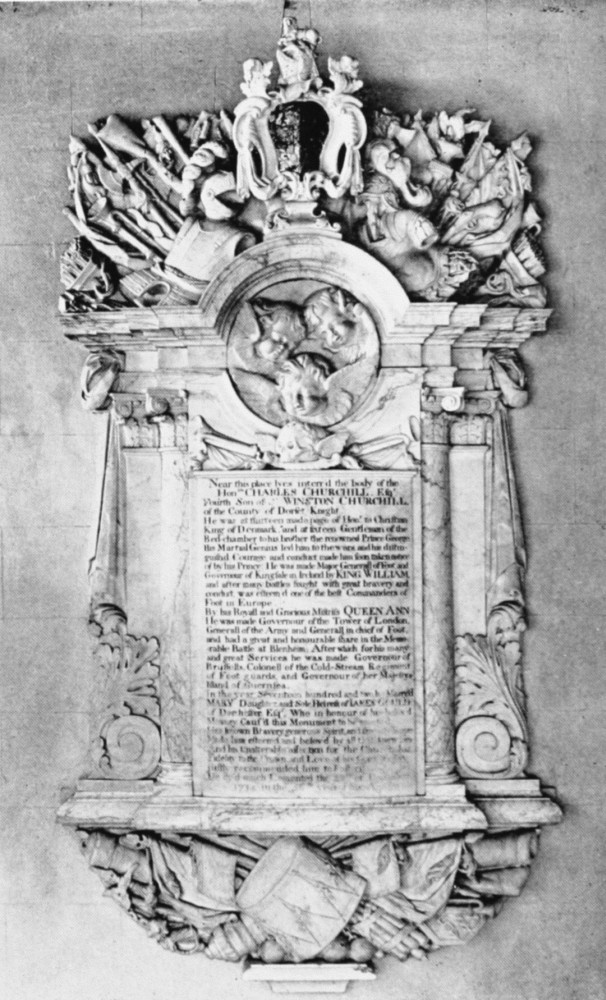 Near this place lyes interr'd the body of the
Hon.ble CHARLES CHURCHILL, Esq.r
Fourth Son of S.r WINSTON CHURCHILL,
of the County of Dorset Knight
He was at thirteen made page of Hon.r to Christian
King of Denmark, and at sixteen Gentleman of the
Bed-chamber to his brother the renowned Prince George
His Martial Genius led him to the wars, and his distin-
guish'd Courage and conduct made him soon taken notice
of by his Prince. He was made Major Generall of Foot, and
Governour of Kingsale in Ireland by KING WILLIAM,
and after many battles fought with great bravery and
conduct, was esteem'd one of the best Commanders of
Foot in Europe
By his Royall and Gracious Mistriss QUEEN ANN
He was made Governour of the Tower of London,
Generall of the Army and Generall in chief of Foot,
and had a great and honourable share in the Memo-
rable Battle at Blenheim; After which for his many
and great Services he was made Governour of
Brussells, Colonell of the Cold-Stream Regiment
of Foot guards, and Governour of her Majestys
Island of Guernsea.
In the year Seventeen hundred and two he Marryd
MARY Daughter and Sole Heiress of JAMES GOULD
of Dorchester Esq.r, Who in honour of his
Memory Caus'd this Monument to be
known Bravery generous Spirit, and
made him esteem'd and belov'd by all
And his Unalterable affection for the
Fidelity to the and Love of his
recommended him to
Lamented the